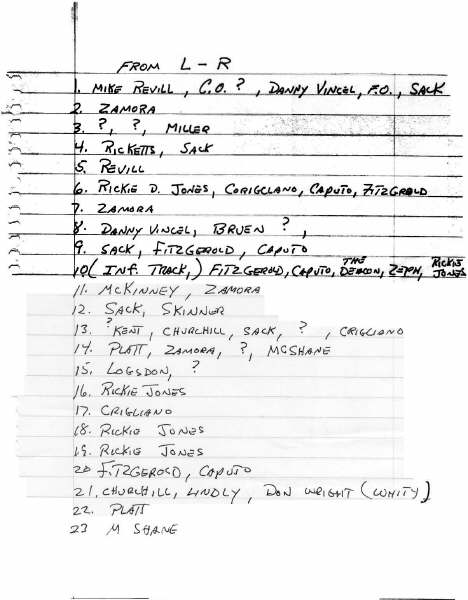 FROM L - R
1. MIKE REVILL, C.O. ?, DANNY VINCEL, F.O., SACK
2. ZAMORA
3. ?, ?, MILLER
4. RICKETTS, SACK
5. REVILL
6. RICKIE D. JONES, CORIGCLANO, CAPUTO, FITZGERALD
7. ZAMORA
8. DANNY VINCEL, BRUEN ?,
9. SACK, FITZGEROLD, CAPUTO
10 (INF. TRACK,) FITZGEROLD, CAPUTO, THE DEACON, ZEPH, RICKIE JONES
11. MCKINNEY, ZAMORA
12. SACK, SKINNER
13. ? KENT, CHURCHILL, SACK, ?, CRIGLIANO
14. PLATT, ZAMORA, ?, MCSHANE
15. LOGSDON, ?
16. RICKIE JONES
17. CRIGLIANO
18. RICKIE JONES
19. RICKIE JONES
20 FITZGEROLD, CAPUTO
21. CHURCHILL, LINDLY, DON WRIGHT (WHITY)
22. PLATT
23 M SHANE